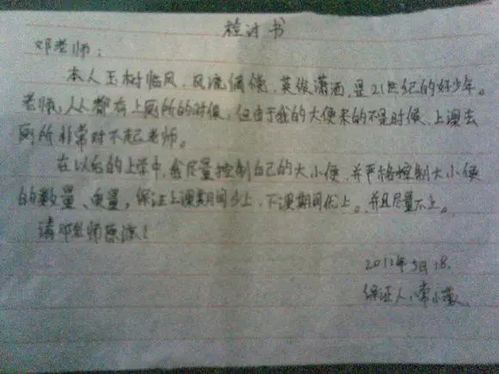 检讨书
邓老师：
本人玉树临风，风流倜傥，英俊潇洒，是21世纪的好少年。
老师，人人都有上厕所的时候，但由于我的大便来的不是时候，上课去
厕所非常对不起老师。
在以后的上学中，我尽量控制自己的大小便，并严格控制大小便
的数量、质量，保证上课期间少上，下课期间优上。并且尽量不上。
请邓老师原谅！
2011年5月18.
保证人：常小